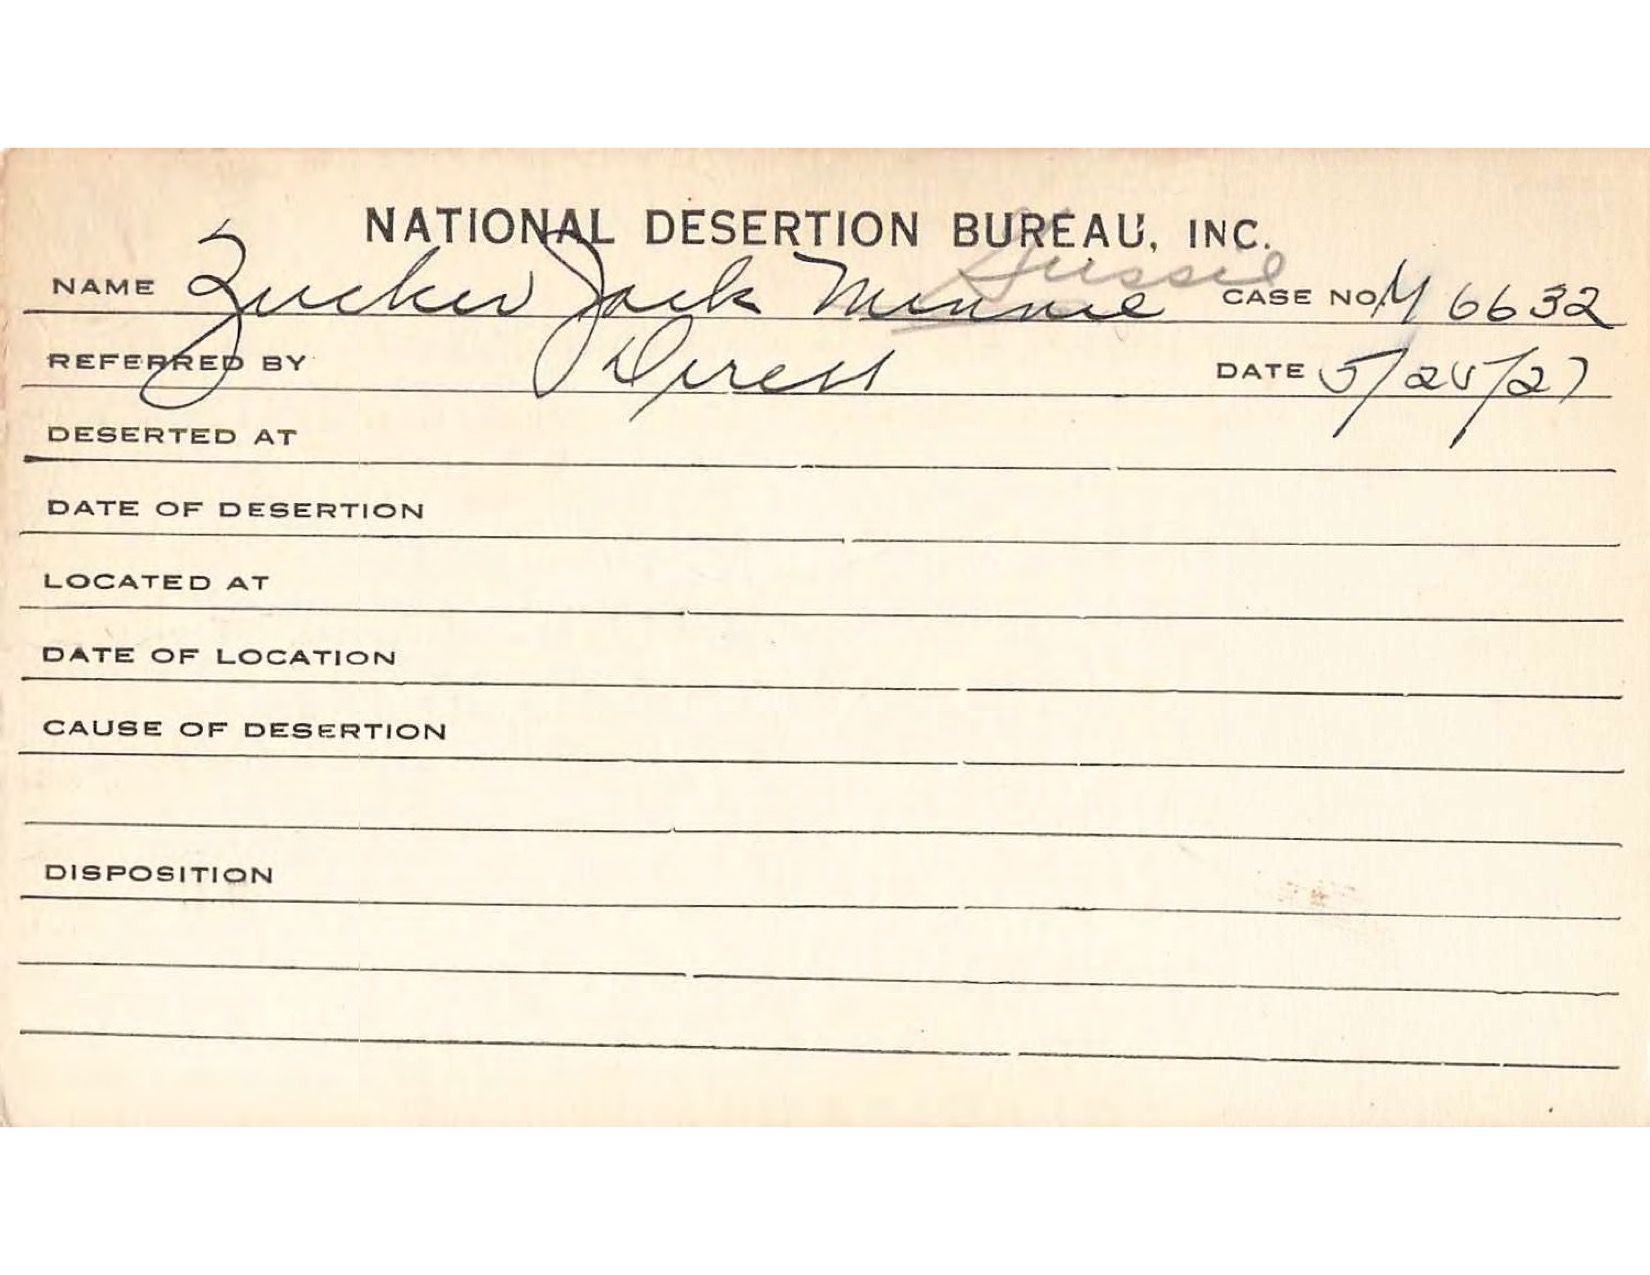 NATIONAL DESERTION BUREAU, INC.
Gussie
NAME Zucker Jack Minnie CASE NO. M 6632
REFERRED BY Direct DATE 5/25/27
DESERTED AT
DATE OF DESERTION
LOCATED AT
DATE OF LOCATION
CAUSE OF DESERTION
DISPOSITION